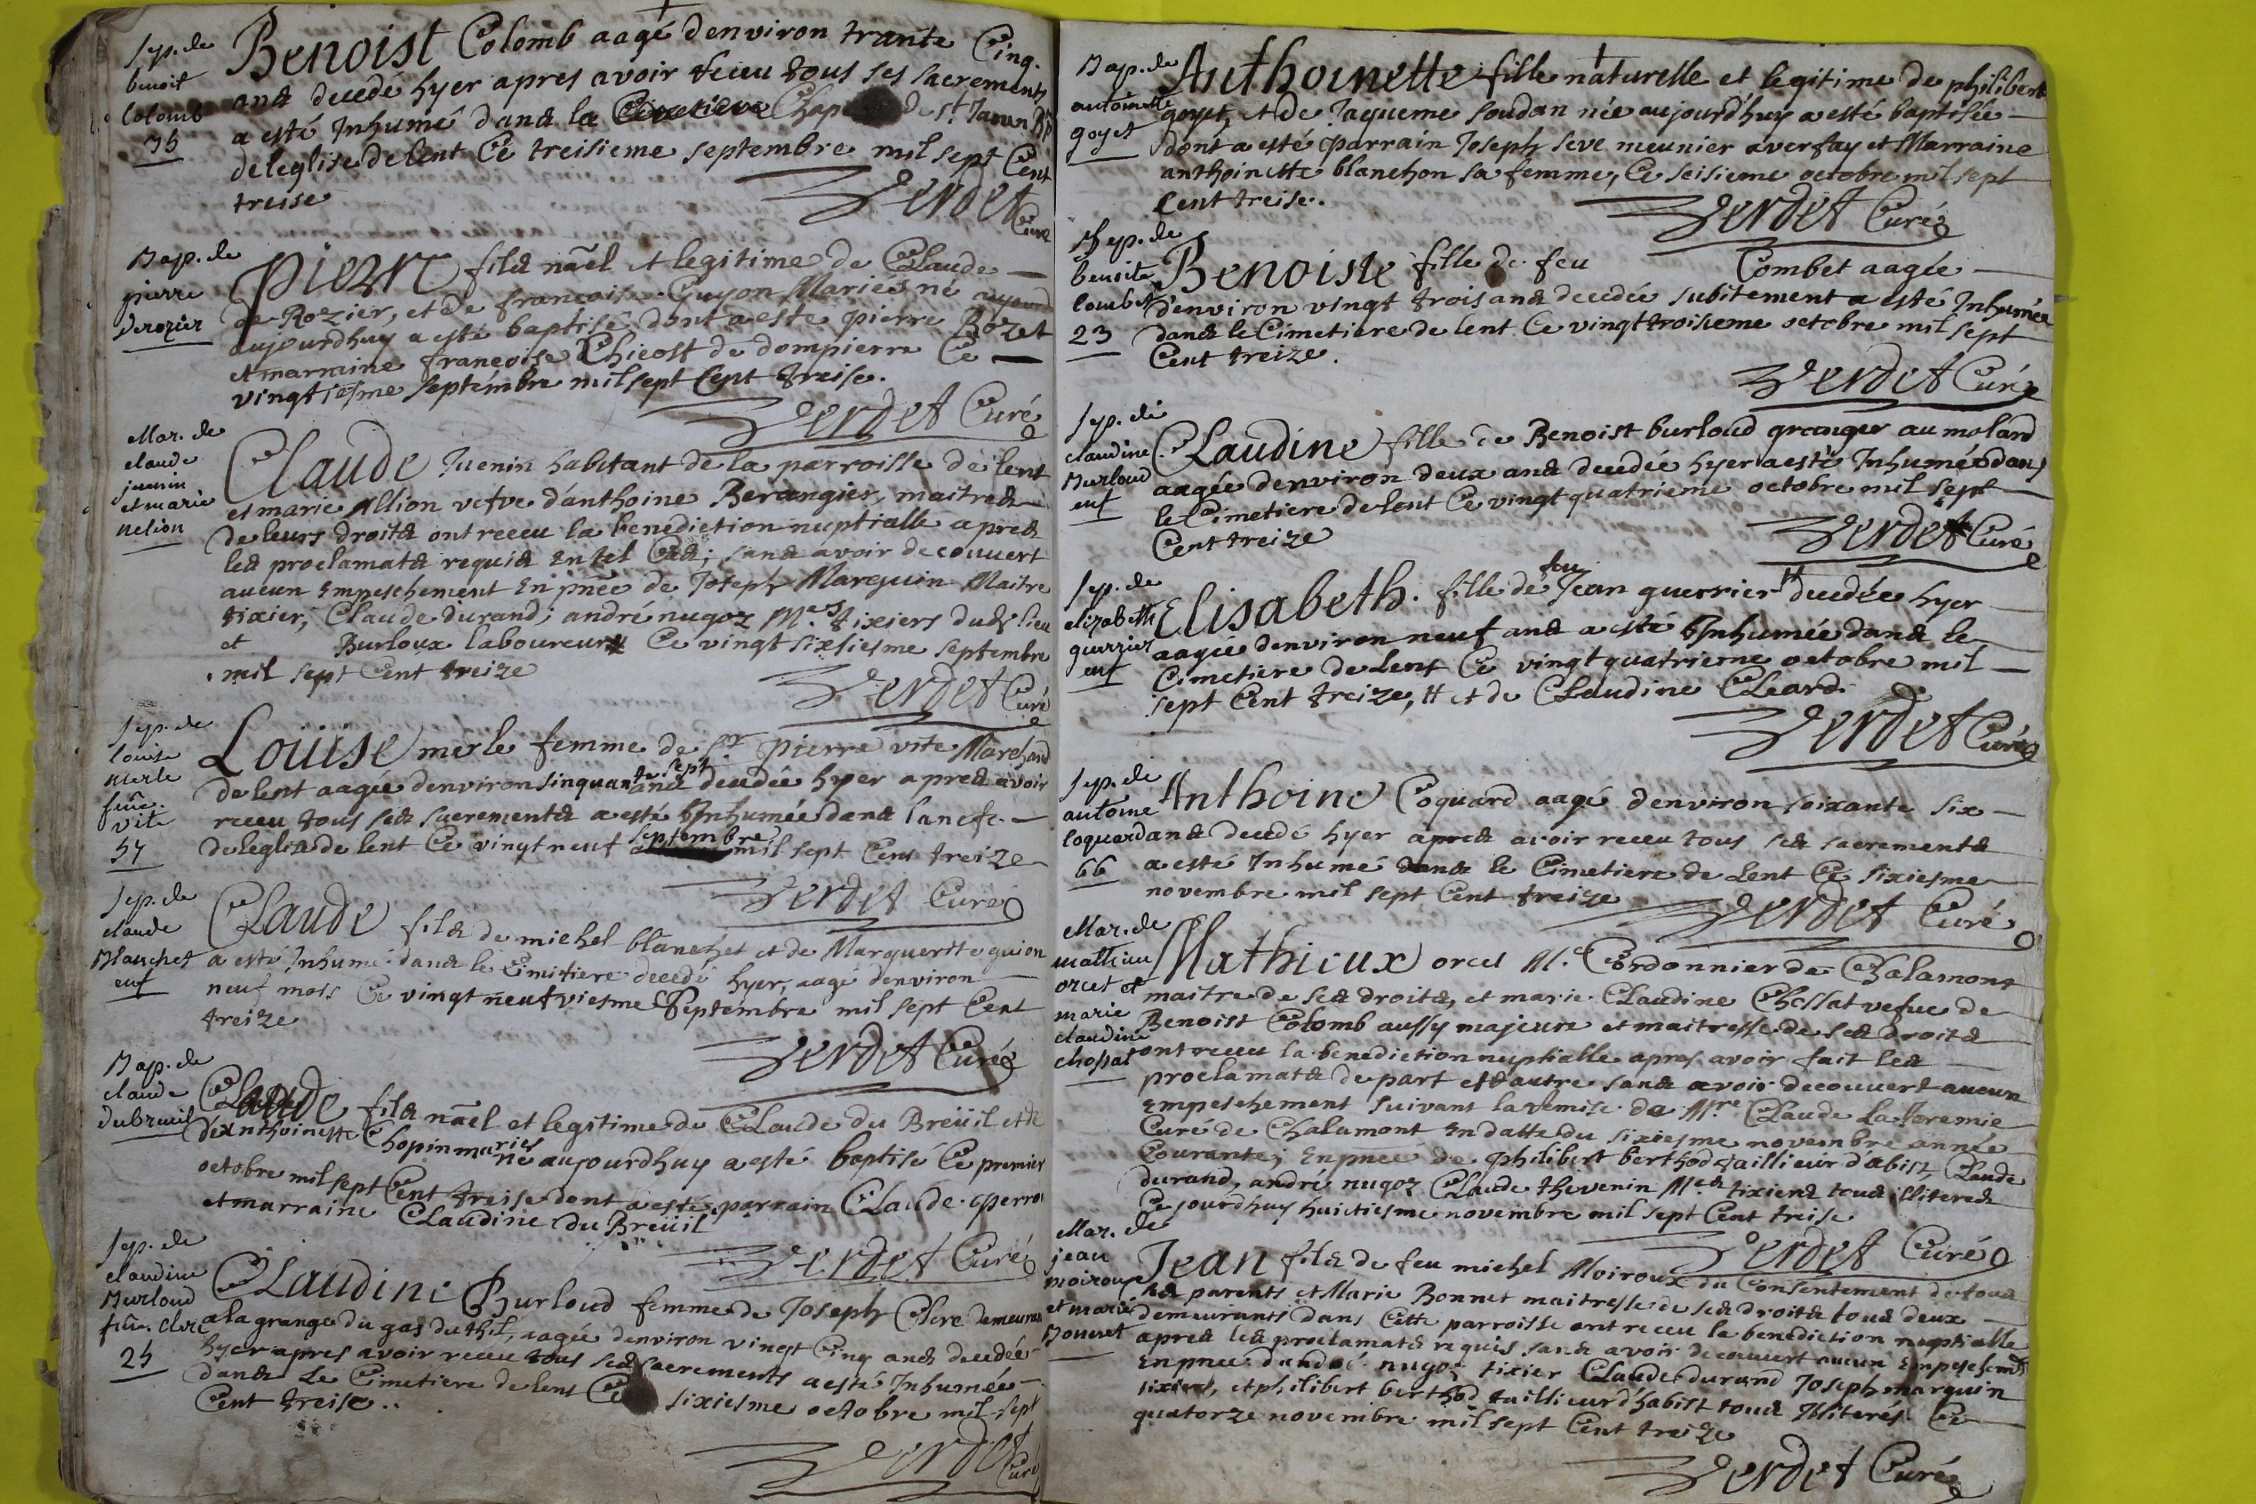 Sep. de
benoit
Colomb
35
Benoist Colomb aagé denviron trante Cinq.
ans decedé hyer apres avoir receu tous ses sacrements
a esté Inhumé dans la Cimetiere Chap de st
deleglise de lent Ce treisieme septembre mil sept Cent
treise
Verdet
Curé
Bap. de
pierre
derozier
pierre fils nãel et legitime de Claude
de Rozier, et de francoise Guyon Mariés né
aujourdhuy a esté baptisé dont a este pierre Bozet
et marraine françoise Chicost de dompierre Ce
vingtiesme septembre mil sept Cent treise.
Verdet Curé
Mar. de
claude
juenin
et marie
nelion
Claude Juenin habitant de la parroisse de lent
et marie Allion vefve danthoine Berangier, maitres
de leurs droits ont receu la benediction nuptialle apres
les proclamats requis en tel Cas; sans avoir decouvert
aucun Empeschement En pnẽe de Joseph Marquin Maitre
tixier, Claude durand; andré nugoz Mes. tixiers dud. lieu
et Burloux laboureur Ce vingt sixsiesme septembre
mil sept Cent treize
Verdet Curé
Sep. de
louise
merle
fũe.
vite
57
Louise merle femme de sr pierre vite Marchand
de lent aagée denviron sinquante sept ans decedée hyer apres avoir
receu tous ses sacrements a esté Inhumée dans lanefe.
deleglise de lent Ce vingt neuf septembre mil sept Cent treize
Verdet Curé
Sep. de
claude
Blanchet
enf
Claude fils de michel blanchet et de Marguerite guion
a esté Inhumé dans le Cimitiere decedé hyer, aagé denviron
neuf mois Ce vingt neufviesme Septembre mil sept Cent
treize
Verdet Curé
Bap. de
claude
dubreuil
Claude fils nãel et legitime de Claude du Breüil et de
dAnthoinette Chopin mariés né aujourdhuy a esté baptisé Ce premier
octobre mil sept Cent treise dont a esté parrain Claude perrou
et marraine Claudine du Breüil
Verdet Curé
Sep. de
claudine
Burloud
fũe. clere
25
Claudine Burloud femme de Joseph Clere demeurant
a la grange du gas du thil, aagée denviron vingt Cinq ans decedée
hyer apres avoir receu tous ses sacrements a esté Inhumée
dans Le Cimetiere de lent Ce sixiesme octobre mil sept
Cent treise..
Verdet
Curé
Bap. de
antoinette
goyet
Anthoinette fille naturelle et legitime de philibert
goyet, et de Jaqueme soudan née aujourdhuy a esté baptisée
dont a esté parrain Joseph seve meunier a verfay et Marraine
anthoinette blanchon sa femme, Ce seisieme octobre mil sept
Cent treise.
Verdet Curé
Sep. de
benoite
Combet
23
Benoiste fille de feu Combet aagée
denviron vingt trois ans decedée subitement a esté Inhumée
dans le Cimetiere de lent Ce vingt troisieme octobre mil sept
Cent treize.
Verdet Curé
Sep. de
claudine
Burloud
enf
Claudine fille de Benoist burloud granger au molard
aagée denviron deux ans decedée hyer a esté Inhumée dans
le Cimetiere de lent Ce vingt quatrieme octobre mil sept
Cent treize
Verdet Curé
Sep. de
elizabeth
guerrier
enf
Elisabeth. fille de feu Jean guerrier # decedée hyer
aagée denviron neuf ans a esté Inhumée dans le
Cimetiere de lent Ce vingt quatrieme octobre mil
sept Cent treize, # et de Claudine Cleard.
Verdet Curé
Sep. de
antoine
Coquard
66
Anthoine Coquard aagé denviron soixante six
ans decedé hyer apres avoir receu tous ses sacrements
a esté Inhumé dans le Cimetiere de Lent Ce sixiesme
novembre mil sept Cent treize
Verdet Curé
Mar. de
mathieu
orcet et
marie
claudine
chossat
Mathieux orcel Me. Cordonnier de Chalamont
maitre de ses droits, et marie Claudine Chossat vefve de
Benoist Colomb aussy majeure et maitresse de ses droits
ont receu la benediction nuptialle apres avoir fait les
proclamats de part et dautre sans avoir decouvert aucun
Empeschement suivant la remise de Mre. Claude La Jeremie
Curé de Chalamont en datte du sixiesme novembre année
Courante; En pnẽe de philibert berthod taillieur d'abist, Claude
durand, andré nugoz Claude thevenin Mes tixiers tous illiteres
Ce jourdhuy huictiesme novembre mil sept Cent treise
Verdet Curé
Mar. de
jean
moiroux
et marie
Bonnet
Jean fils de feu michel Moiroux du Consentement de tous
ses parents et Marie Bonnet maitresse de ses droits tous deux
demeurants dans Cette parroisse ont receu la benediction nuptialle
apres les proclamats requis sans avoir decouvert aucun Empeschemt
En pnẽe dandré nugoz tixier Claude durand Joseph marquin
tixiers, et philibert berthod taillieur d'habist tous Illiterés Ce
quatorze novembre mil sept Cent treize
Verdet Curé